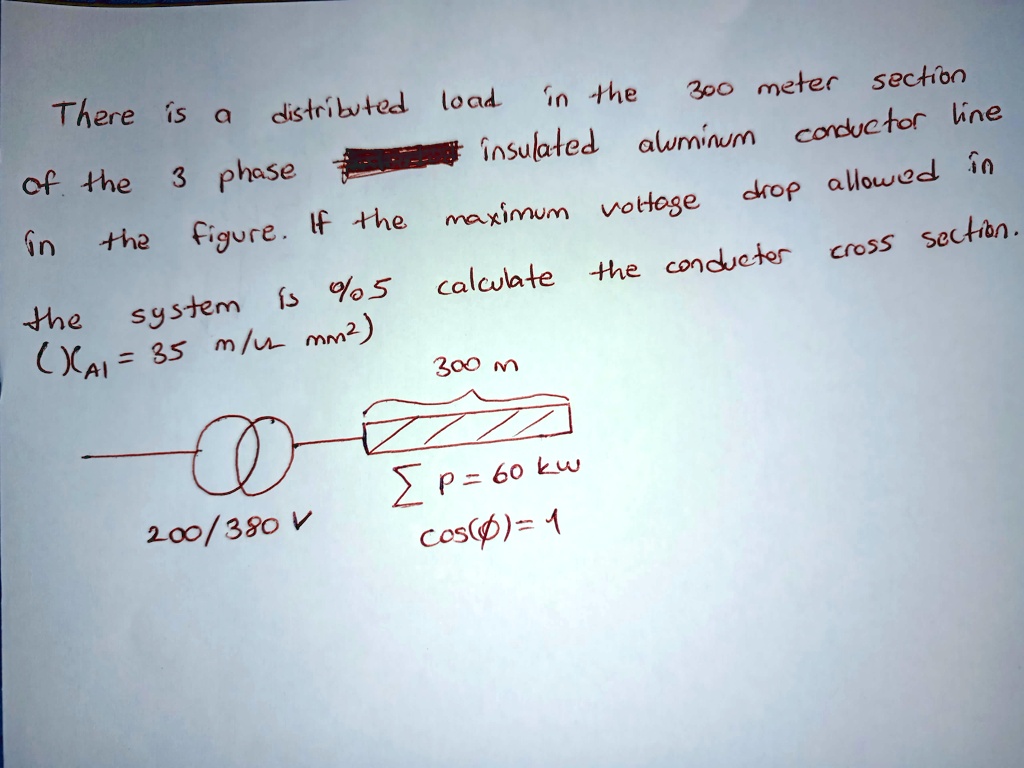 There is a distributed load in the 300 meter section
of the 3 phase insulated aluminum conductor line
in the figure. If the maximum voltage drop allowed in
the system is %5 calculate the conductor cross section.
(χAl = 35 m/Ω mm²)
300 m
Σ P = 60 kw
200/380 V
cos(φ) = 1